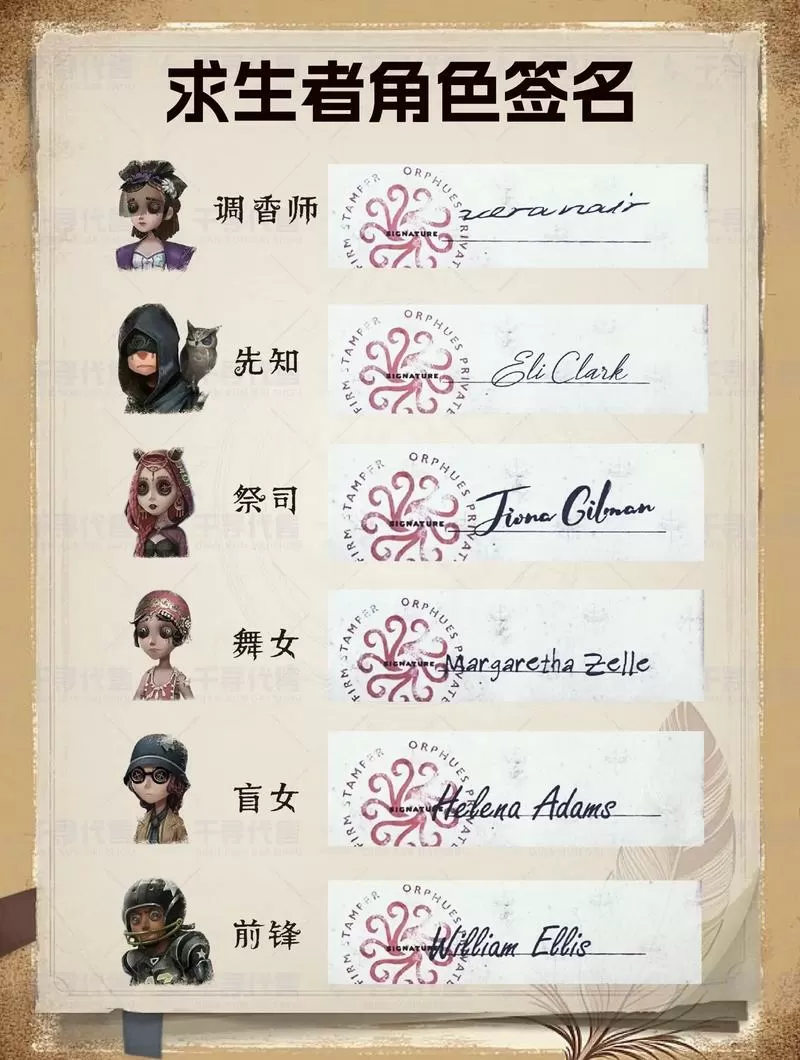 求生者角色签名
调香师
ORPHUES PRIVATE FIRM STAMPER
SIGNATURE
vera nair
先知
ORPHUES PRIVATE FIRM STAMPER
SIGNATURE
Eli Clark
祭司
ORPHUES PRIVATE FIRM STAMPER
SIGNATURE
Fiona Gilman
舞女
ORPHUES PRIVATE FIRM STAMPER
SIGNATURE
Margaretha Zelle
盲女
ORPHUES PRIVATE FIRM STAMPER
SIGNATURE
Helena Adams
前锋
ORPHUES PRIVATE FIRM STAMPER
SIGNATURE
William Ellis